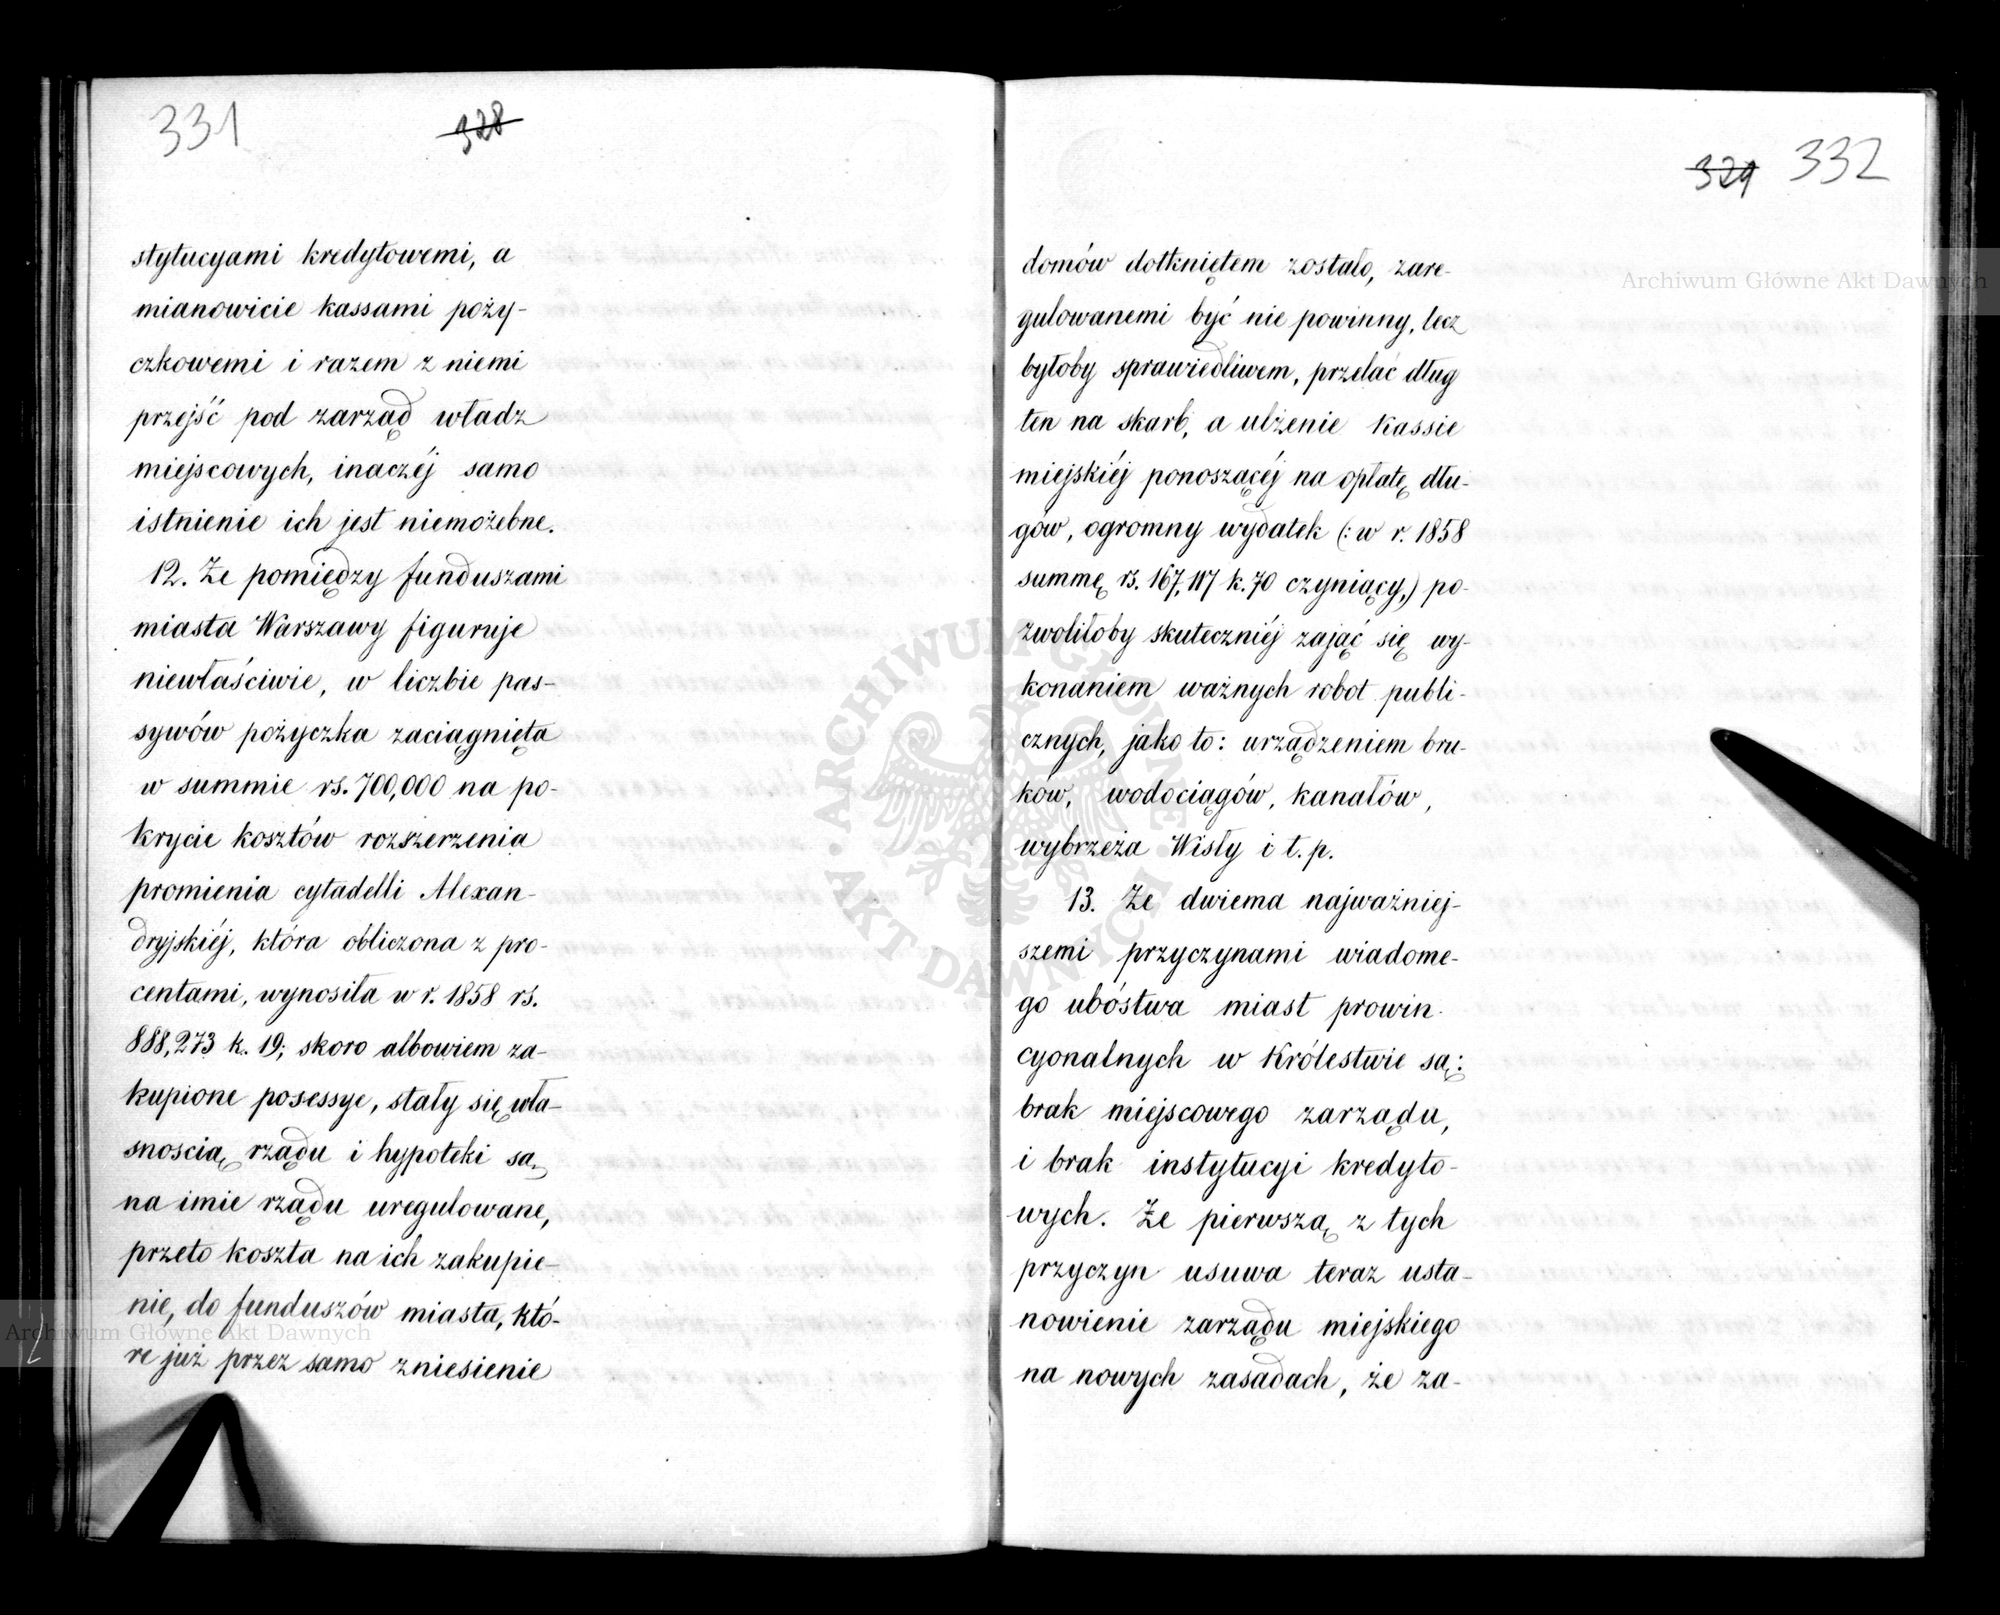 331
328
stytucyami kredytowemi, a
mianowicie kassami poży-
czkowemi i razem z niemi
przejść pod zarząd władz
miejscowych, inaczéj samo
istnienie ich jest niemożebne.
12. Że pomiędzy funduszami
miasta Warszawy figuruje
niewłaściwie, w liczbie pas-
sywów pożyczka zaciągnięta
w summie rs. 700,000 na po-
krycie kosztów rozszerzenia
promienia cytadelli Alexan-
dryjskiéj, która obliczona z pro-
centami, wynosiła w r. 1858 rs.
888,273 k. 19; skoro albowiem za-
kupione posessye, stały się wła-
snoscią rządu i hypoteki są
na imie rządu uregulowane,
przeto koszta na ich zakupie-
nie, do funduszów miasta, któ-
re już przez samo zniesienie
329 332
domów dotkniętem zostało, zare-
gulowanemi być nie powinny, lecz
byłoby sprawiedliwem, przelać dług
ten na skarb, a ulżenie kassie
miejskiéj ponoszącéj na opłatę dłu-
gów, ogromny wydatek (: w r. 1858
summę rs. 167,117 k. 70 czyniący,) po-
zwoliłoby skuteczniéj zająć się wy-
konaniem ważnych robot publi-
cznych, jako to: urządzeniem bru-
ków, wodociągów, kanałów,
wybrzeża Wisły i t. p.
13. Że dwiema najważniej-
szemi przyczynami wiadome-
go ubóstwa miast prowin-
cyonalnych w Królestwie są:
brak miejscowego zarządu,
i brak instytucyi kredyto-
wych. Że pierwszą z tych
przyczyn usuwa teraz usta-
nowienie zarządu miejskiego
na nowych zasadach, że za-
Archiwum Główne Akt Dawnych
Archiwum Główne Akt Dawnych
ARCHIWUM GŁÓWNE
AKT DAWNYCH